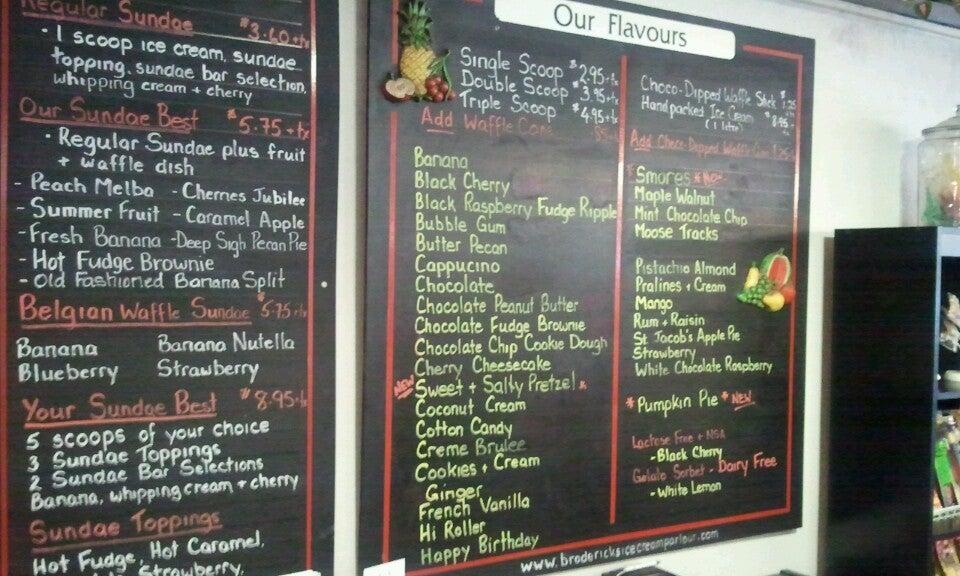 Regular Sundae $3.60+tx
• 1 scoop ice cream, sundae
topping, sundae bar selection,
whipping cream + cherry
Our Sundae Best $5.75+tx
• Regular Sundae plus fruit
+ waffle dish
- Peach Melba - Cherries Jubilee
- Summer Fruit - Caramel Apple
- Fresh Banana - Deep Sigh Pecan Pie
- Hot Fudge Brownie
- Old Fashioned Banana Split
Belgian Waffle Sundae $5.75+tx
Banana Banana Nutella
Blueberry Strawberry
Your Sundae Best $8.95+tx
5 scoops of your choice
3 Sundae Toppings
2 Sundae Bar Selections
Banana, whipping cream + cherry
Sundae Toppings
Hot Fudge, Hot Caramel,
Strawberry,
Our Flavours
Single Scoop $2.95+tx
Double Scoop $3.95+tx
Triple Scoop $4.95+tx
Add Waffle Cone
Banana
Black Cherry
Black Raspberry Fudge Ripple
Bubble Gum
Butter Pecan
Cappucino
Chocolate
Chocolate Peanut Butter
Chocolate Fudge Brownie
Chocolate Chip Cookie Dough
Cherry Cheesecake
NEW Sweet + Salty Pretzel *
Coconut Cream
Cotton Candy
Creme Brulee
Cookies + Cream
Ginger
French Vanilla
Hi Roller
Happy Birthday
Choco-Dipped Waffle Stick $1.25
Handpacked Ice Cream $8.95
(1 litre)
Add Choco-Dipped Waffle Cone
Smores * NEW
Maple Walnut
Mint Chocolate Chip
Moose Tracks
Pistachio Almond
Pralines + Cream
Mango
Rum + Raisin
St Jacob's Apple Pie
Strawberry
White Chocolate Raspberry
* Pumpkin Pie * NEW
Lactose Free + NSA
- Black Cherry
Gelato Sorbet - Dairy Free
- White Lemon
www.brodericksicecreamparlour.com